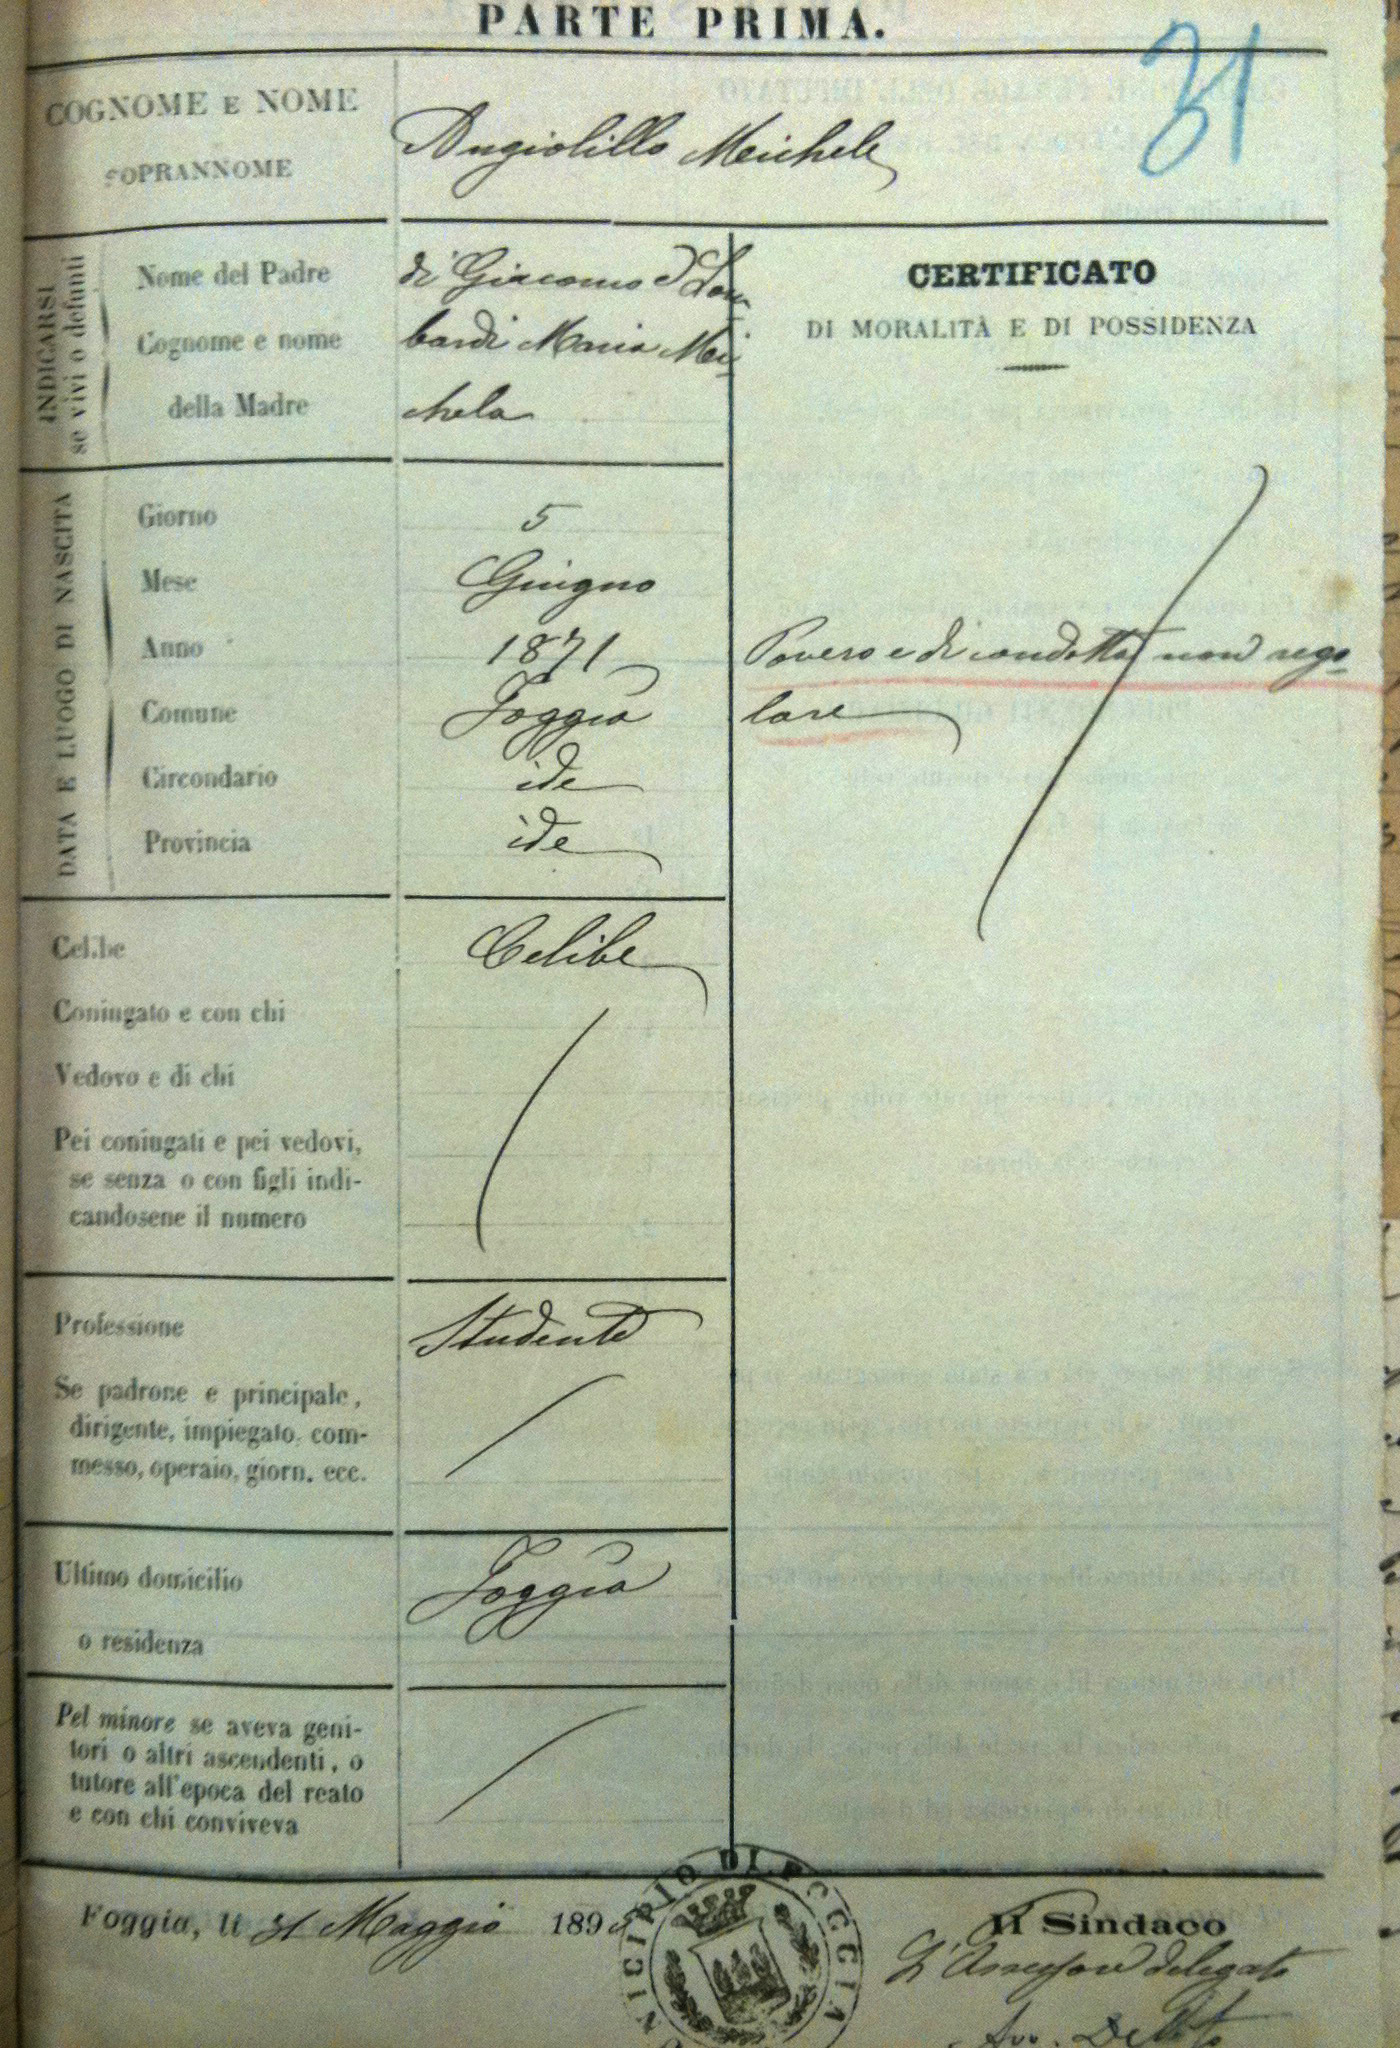 PARTE PRIMA.
31
COGNOME E NOME
SOPRANNOME
Angiolillo Michele
INDICARSI
se vivi o defunti
Nome del Padre
di Giacomo e Lom-
Cognome e nome
bardi Maria Mi-
della Madre
chela
CERTIFICATO
DI MORALITÀ E DI POSSIDENZA
Povero e di condotta non rego-
lare
DATA E LUOGO DI NASCITA
Giorno
5
Mese
Giugno
Anno
1871
Comune
Foggia
Circondario
ide
Provincia
ide
Celibe
Celibe
Coniugato e con chi
Vedovo e di chi
Pei coniugati e pei vedovi,
se senza o con figli indi-
candosene il numero
Professione
Studente
Se padrone e principale,
dirigente, impiegato, com-
messo, operaio, giorn. ecc.
Ultimo domicilio
o residenza
Foggia
Pel minore se aveva geni-
tori o altri ascendenti, o
tutore all'epoca del reato
e con chi conviveva
Foggia, li 31 Maggio 189
MUNICIPIO DI FOGGIA
Il Sindaco
L'Assessore delegato
Avv.